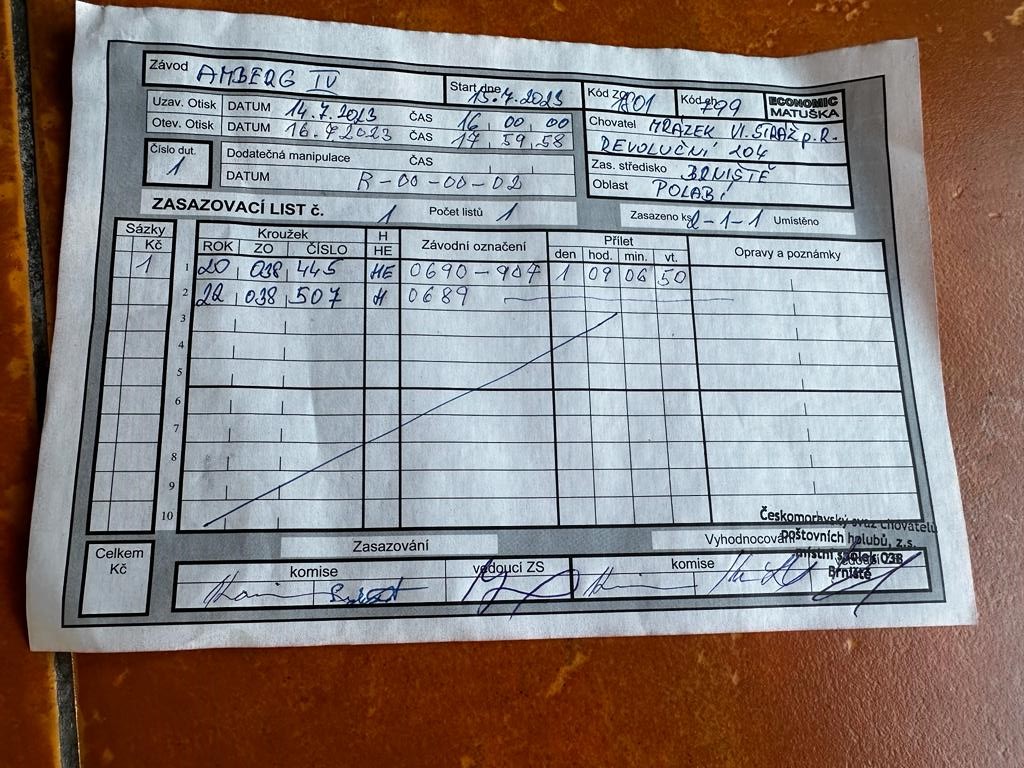 Závod AMBERG IV Start dne 15.7.2023 Kód ZO 1801 Kód ch 799 ECONOMIC MATUŠKA
Uzav. Otisk DATUM 14.7.2023 ČAS 16 00 00
Otev. Otisk DATUM 16.7.2023 ČAS 17 59 58
Chovatel MRÁZEK Vl. STRÁŽ p. R.
REVOLUČNÍ 204
Číslo dut. 1 Dodatečná manipulace ČAS
DATUM R-00-00-02
Zas. středisko BRNIŠTĚ
Oblast POLABÍ
ZASAZOVACÍ LIST č. 1 Počet listů 1 Zasazeno ks 2-1-1 Umístěno
Sázky Kč Kroužek H HE Závodní označení Přílet Opravy a poznámky
ROK ZO ČÍSLO den hod. min. vt.
1 1 20 038 445 HE 0690-907 1 09 06 50
2 22 038 507 H 0689
3
4
5
6
7
8
9
10
Českomoravský svaz chovatelů
poštovních holubů, z.s.
místní spolek 038
Brniště
Celkem Kč Zasazování Vyhodnocování
komise vedoucí ZS komise